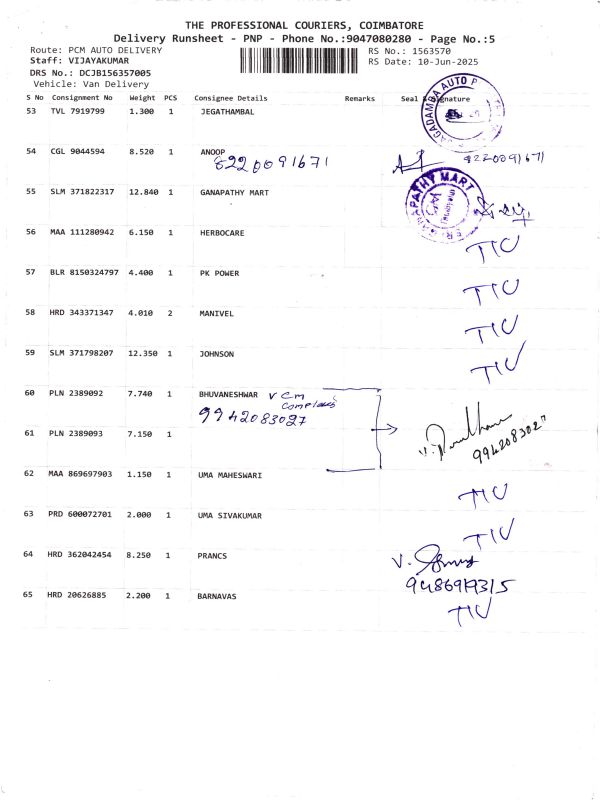 THE PROFESSIONAL COURIERS, COIMBATORE
Delivery Runsheet - PNP - Phone No.:9047080280 - Page No.:5
Route: PCM AUTO DELIVERY RS No.: 1563570
Staff: VIJAYAKUMAR RS Date: 10-Jun-2025
DRS No.: DCJB156357005
Vehicle: Van Delivery
S No Consignment No Weight PCS Consignee Details Remarks Seal & Signature
53 TVL 7919799 1.300 1 JEGATHAMBAL JAGADAMBA AUTO
54 CGL 9044594 8.520 1 ANOOP
8220091671 8220091671
55 SLM 371822317 12.840 1 GANAPATHY MART GANAPATHY MART
56 MAA 111280942 6.150 1 HERBOCARE TIC
57 BLR 8150324797 4.400 1 PK POWER TIC
58 HRD 343371347 4.010 2 MANIVEL TIC
59 SLM 371798207 12.350 1 JOHNSON TIC
60 PLN 2389092 7.740 1 BHUVANESHWAR V Cm
9942083027
61 PLN 2389093 7.150 1 9942083027
62 MAA 869697903 1.150 1 UMA MAHESWARI TIC
63 PRD 600072701 2.000 1 UMA SIVAKUMAR TIC
64 HRD 362042454 8.250 1 PRANCS
65 HRD 20626885 2.200 1 BARNAVAS TIC